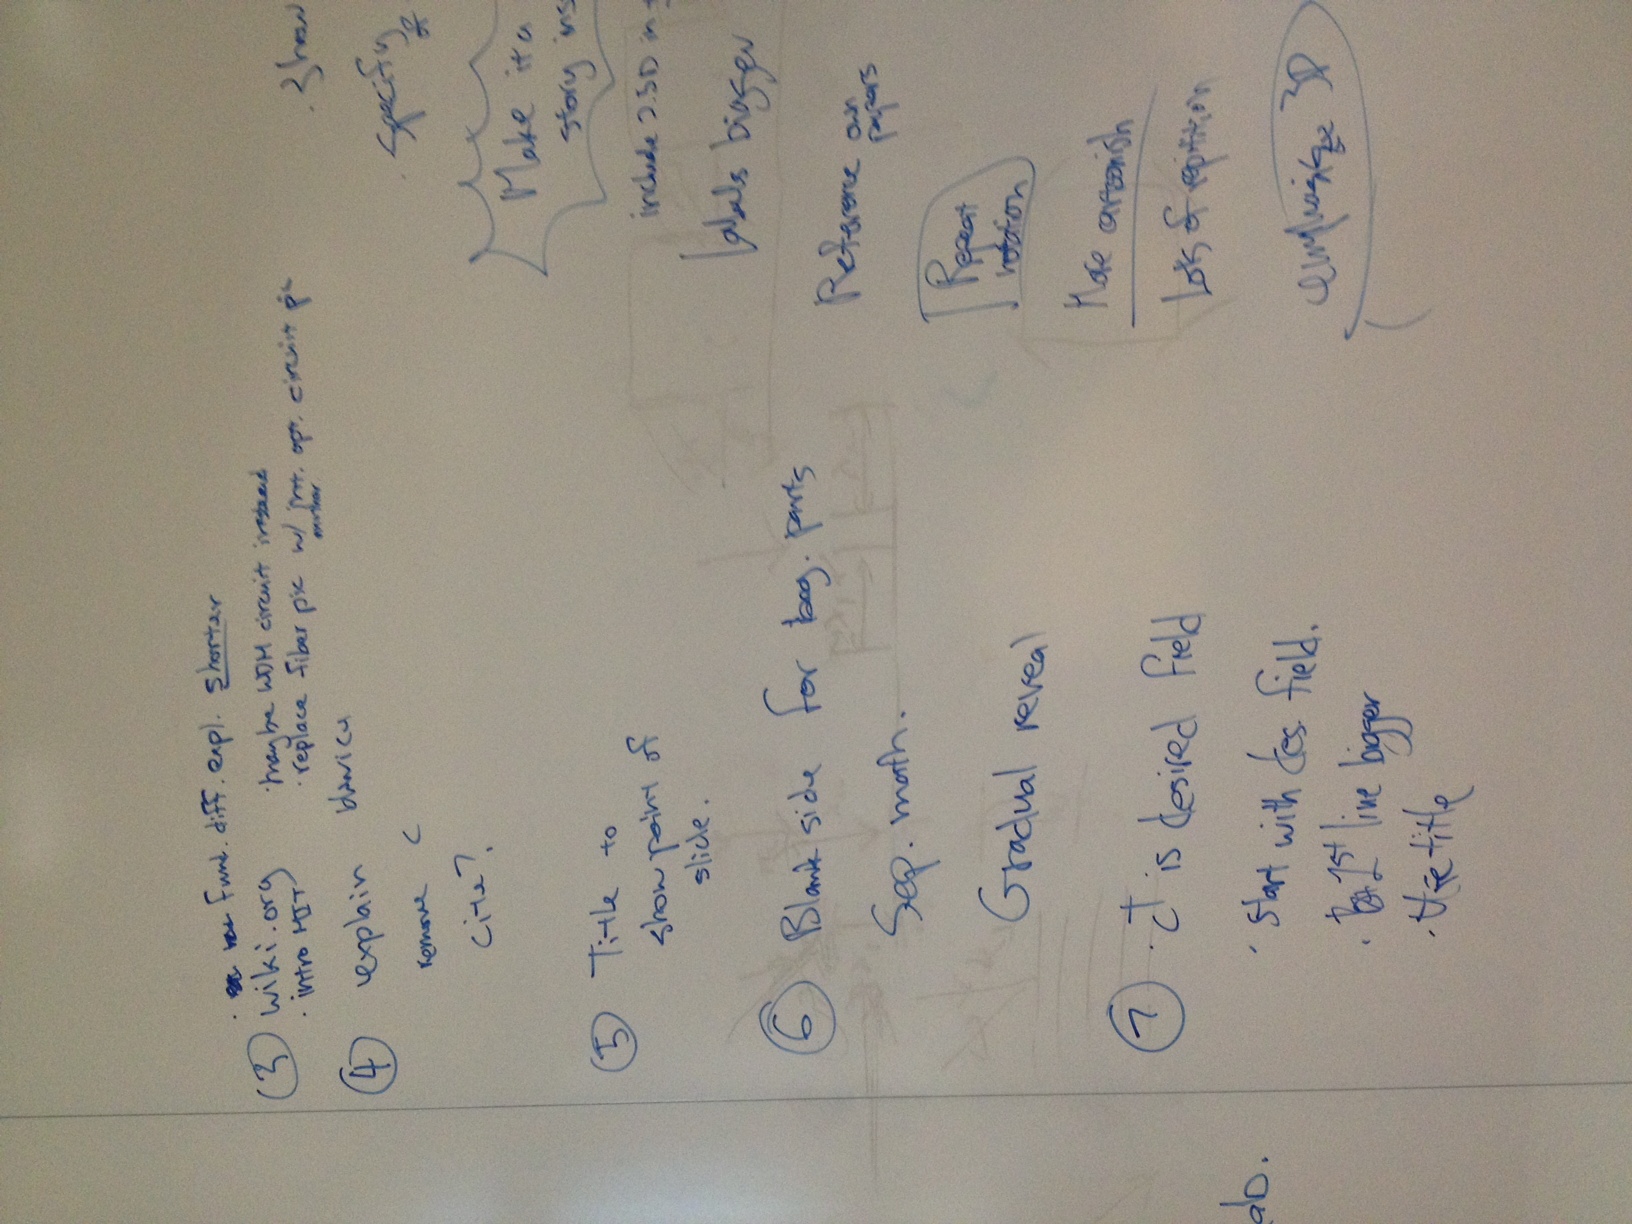 · Fund. diff. expl. shorter
③ wiki.org
· intro MIT
· maybe WDM circuit instead
· replace fiber pic w/ opt. circuit
④ explain
remove c
cite?
⑤ Title to
show point of
slide.
⑥ Blank side for parts
Sep. math.
Gradual reveal
⑦ · c† is desired field
· start with des. field.
· 1st line bigger
· title
ab.
· Show
· specify
Make it a
story ins
include 2.5D in
Labels bigger
Reference own
papers
Repeat
rotation
More cartoonish
Lots of repitition
emphasize 3D